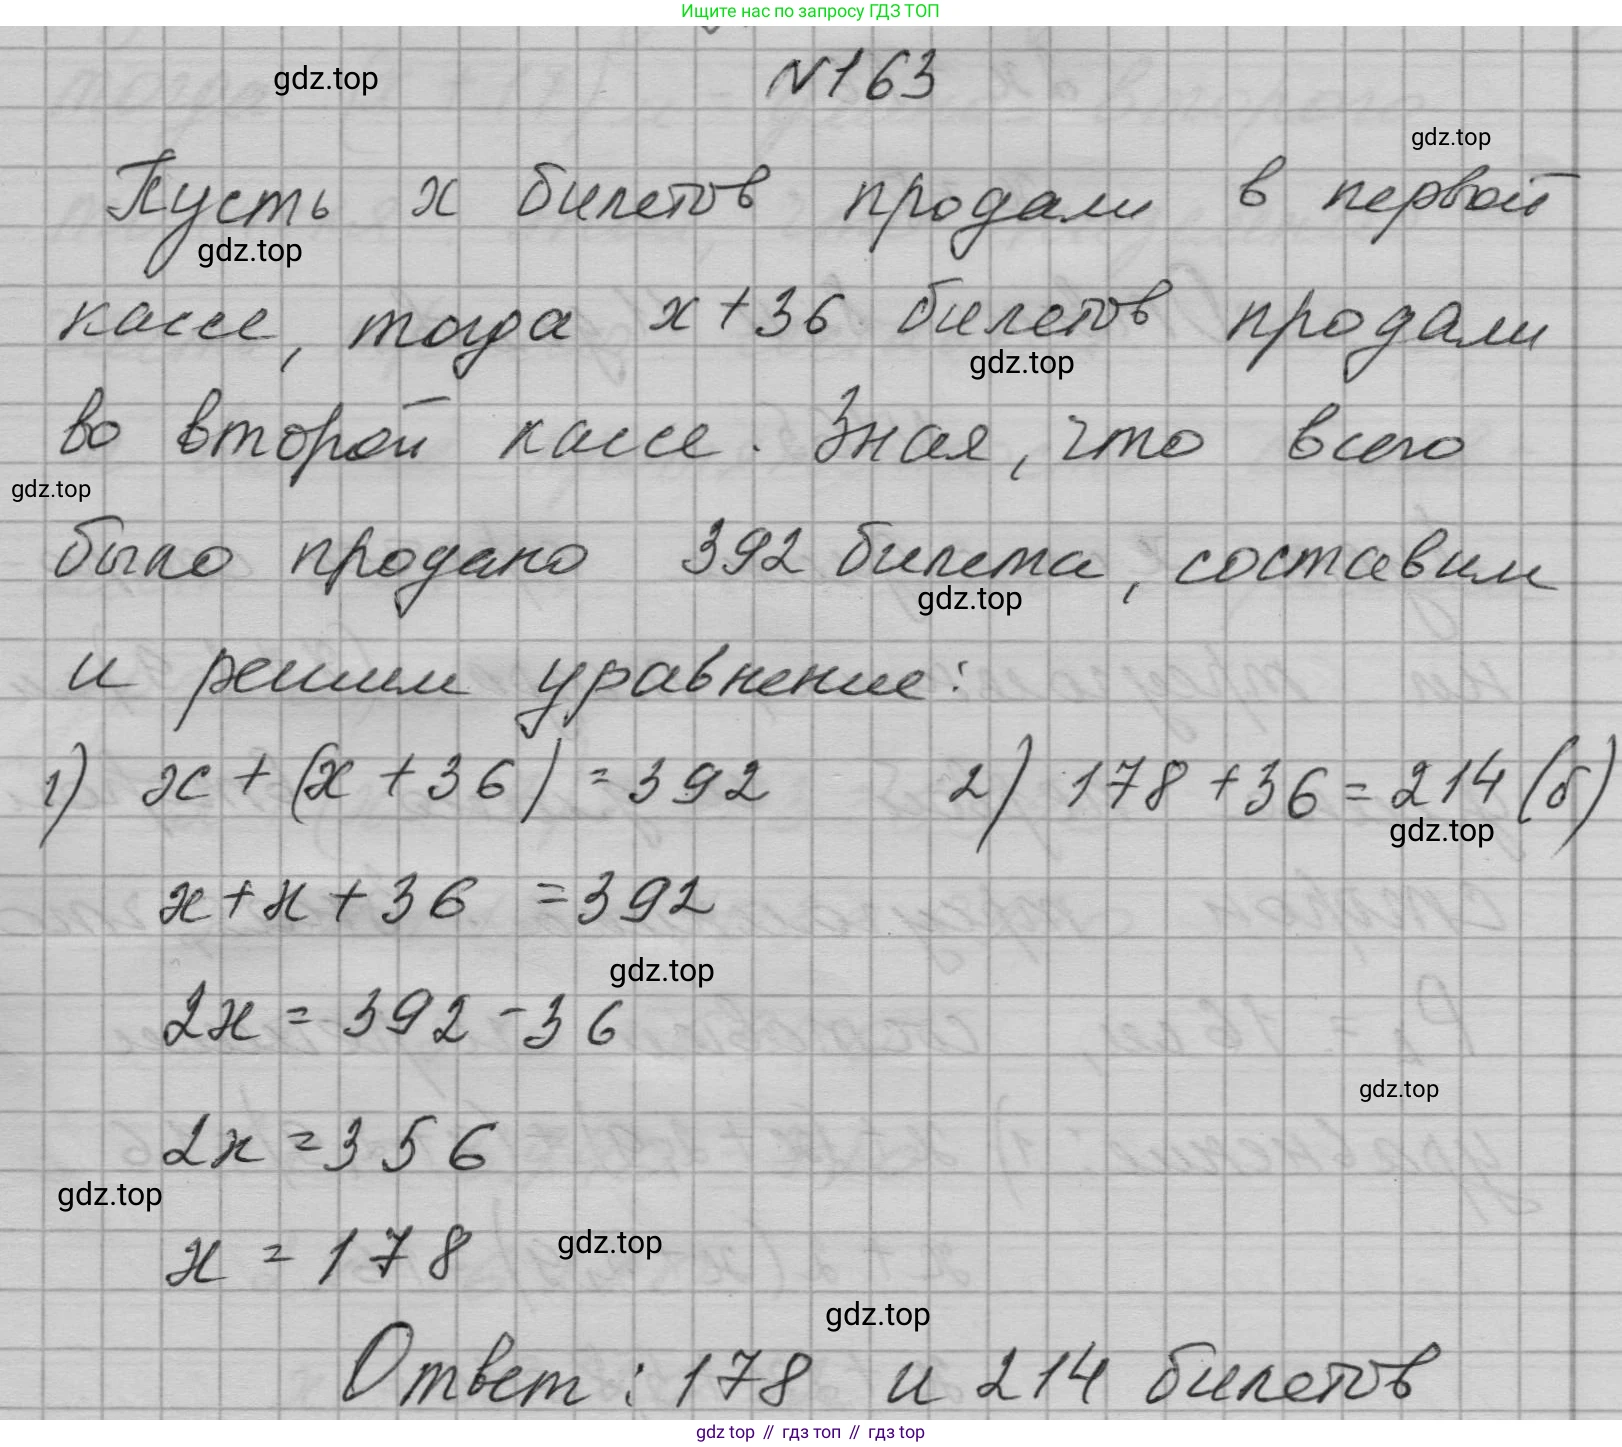 Ищите нас по запросу ГДЗ ТОП
N163
gdz.top
gdz.top
Пусть x билетов продали в первой
gdz.top
кассе, тогда x + 36 билетов продали
gdz.top
во второй кассе. Зная, что всего
gdz.top
было продано 392 билета, составим
gdz.top
и решим уравнение:
1) x + (x + 36) = 392 2) 178 + 36 = 214 (б)
gdz.top
x + x + 36 = 392
gdz.top
2x = 392 - 36
gdz.top
2x = 356
gdz.top
x = 178
gdz.top
gdz.top
Ответ: 178 и 214 билетов
gdz top // гдз топ // гдз top